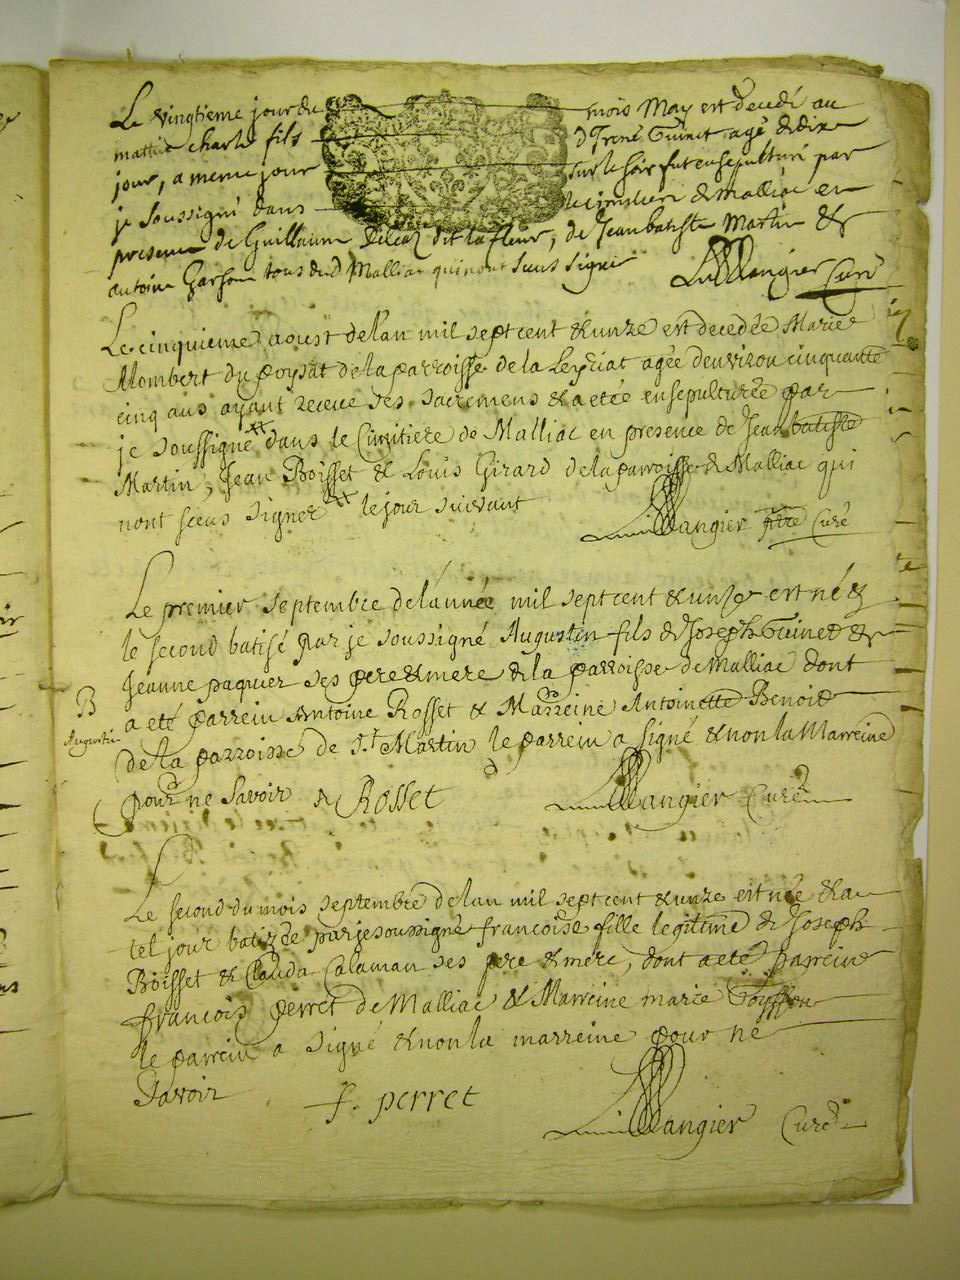 Le vingtieme jour du mois May est decedé au
matin charle fils d'Irené Guinet agé de dix
jour, a meme jour sur le soir fut ensepulturé par
je soussigné dans le cimetiere de Malliac en
presence de Guillaume dit lafleur, de Jean batiste Martin &
antoine tous dud Malliac qui nont sceus signer Langier Curé
Le cinquieme aoust de l'an mil sept cent & unze est decedée Marie
Mombert du poysat de la parroisse de la Leyriat agée denviron cinquante
cinq ans ayant receue ses sacremens & a etée ensepulturée par
je soussigné xx dans le Cimitiere de Malliac en presence de Jean batiste
Martin, Jean Boisset & Louis Girard de la parroisse de Malliac qui
nont sceus signer xx le jour suivant
Langier ptre Curé
Le premier septembre de l'année mil sept cent & unze est né &
le second batisé par je soussigné Augustin fils de Joseph Guinet &
Jeanne paquier ses pere & mere de la parroisse de Malliac dont
B
a eté parrein Antoine Rosset & Marreine Antoinette Benoit
Augustin
de la parroisse de St Martin le parrein a signé & non la Marreine
pour ne savoir A Rosset Langier Curé
Le second du mois septembre de lan mil sept cent & unze est née & a
tel jour batizée par je soussigné francoise fille legitime de Joseph
Boisset & Clauda Calaman ses pere & mere, dont a eté parrein
francois perret de Malliac & Marreine marie Goyffon
le parrein a signé & non la marreine pour ne
savoir F. perret
Langier Curé